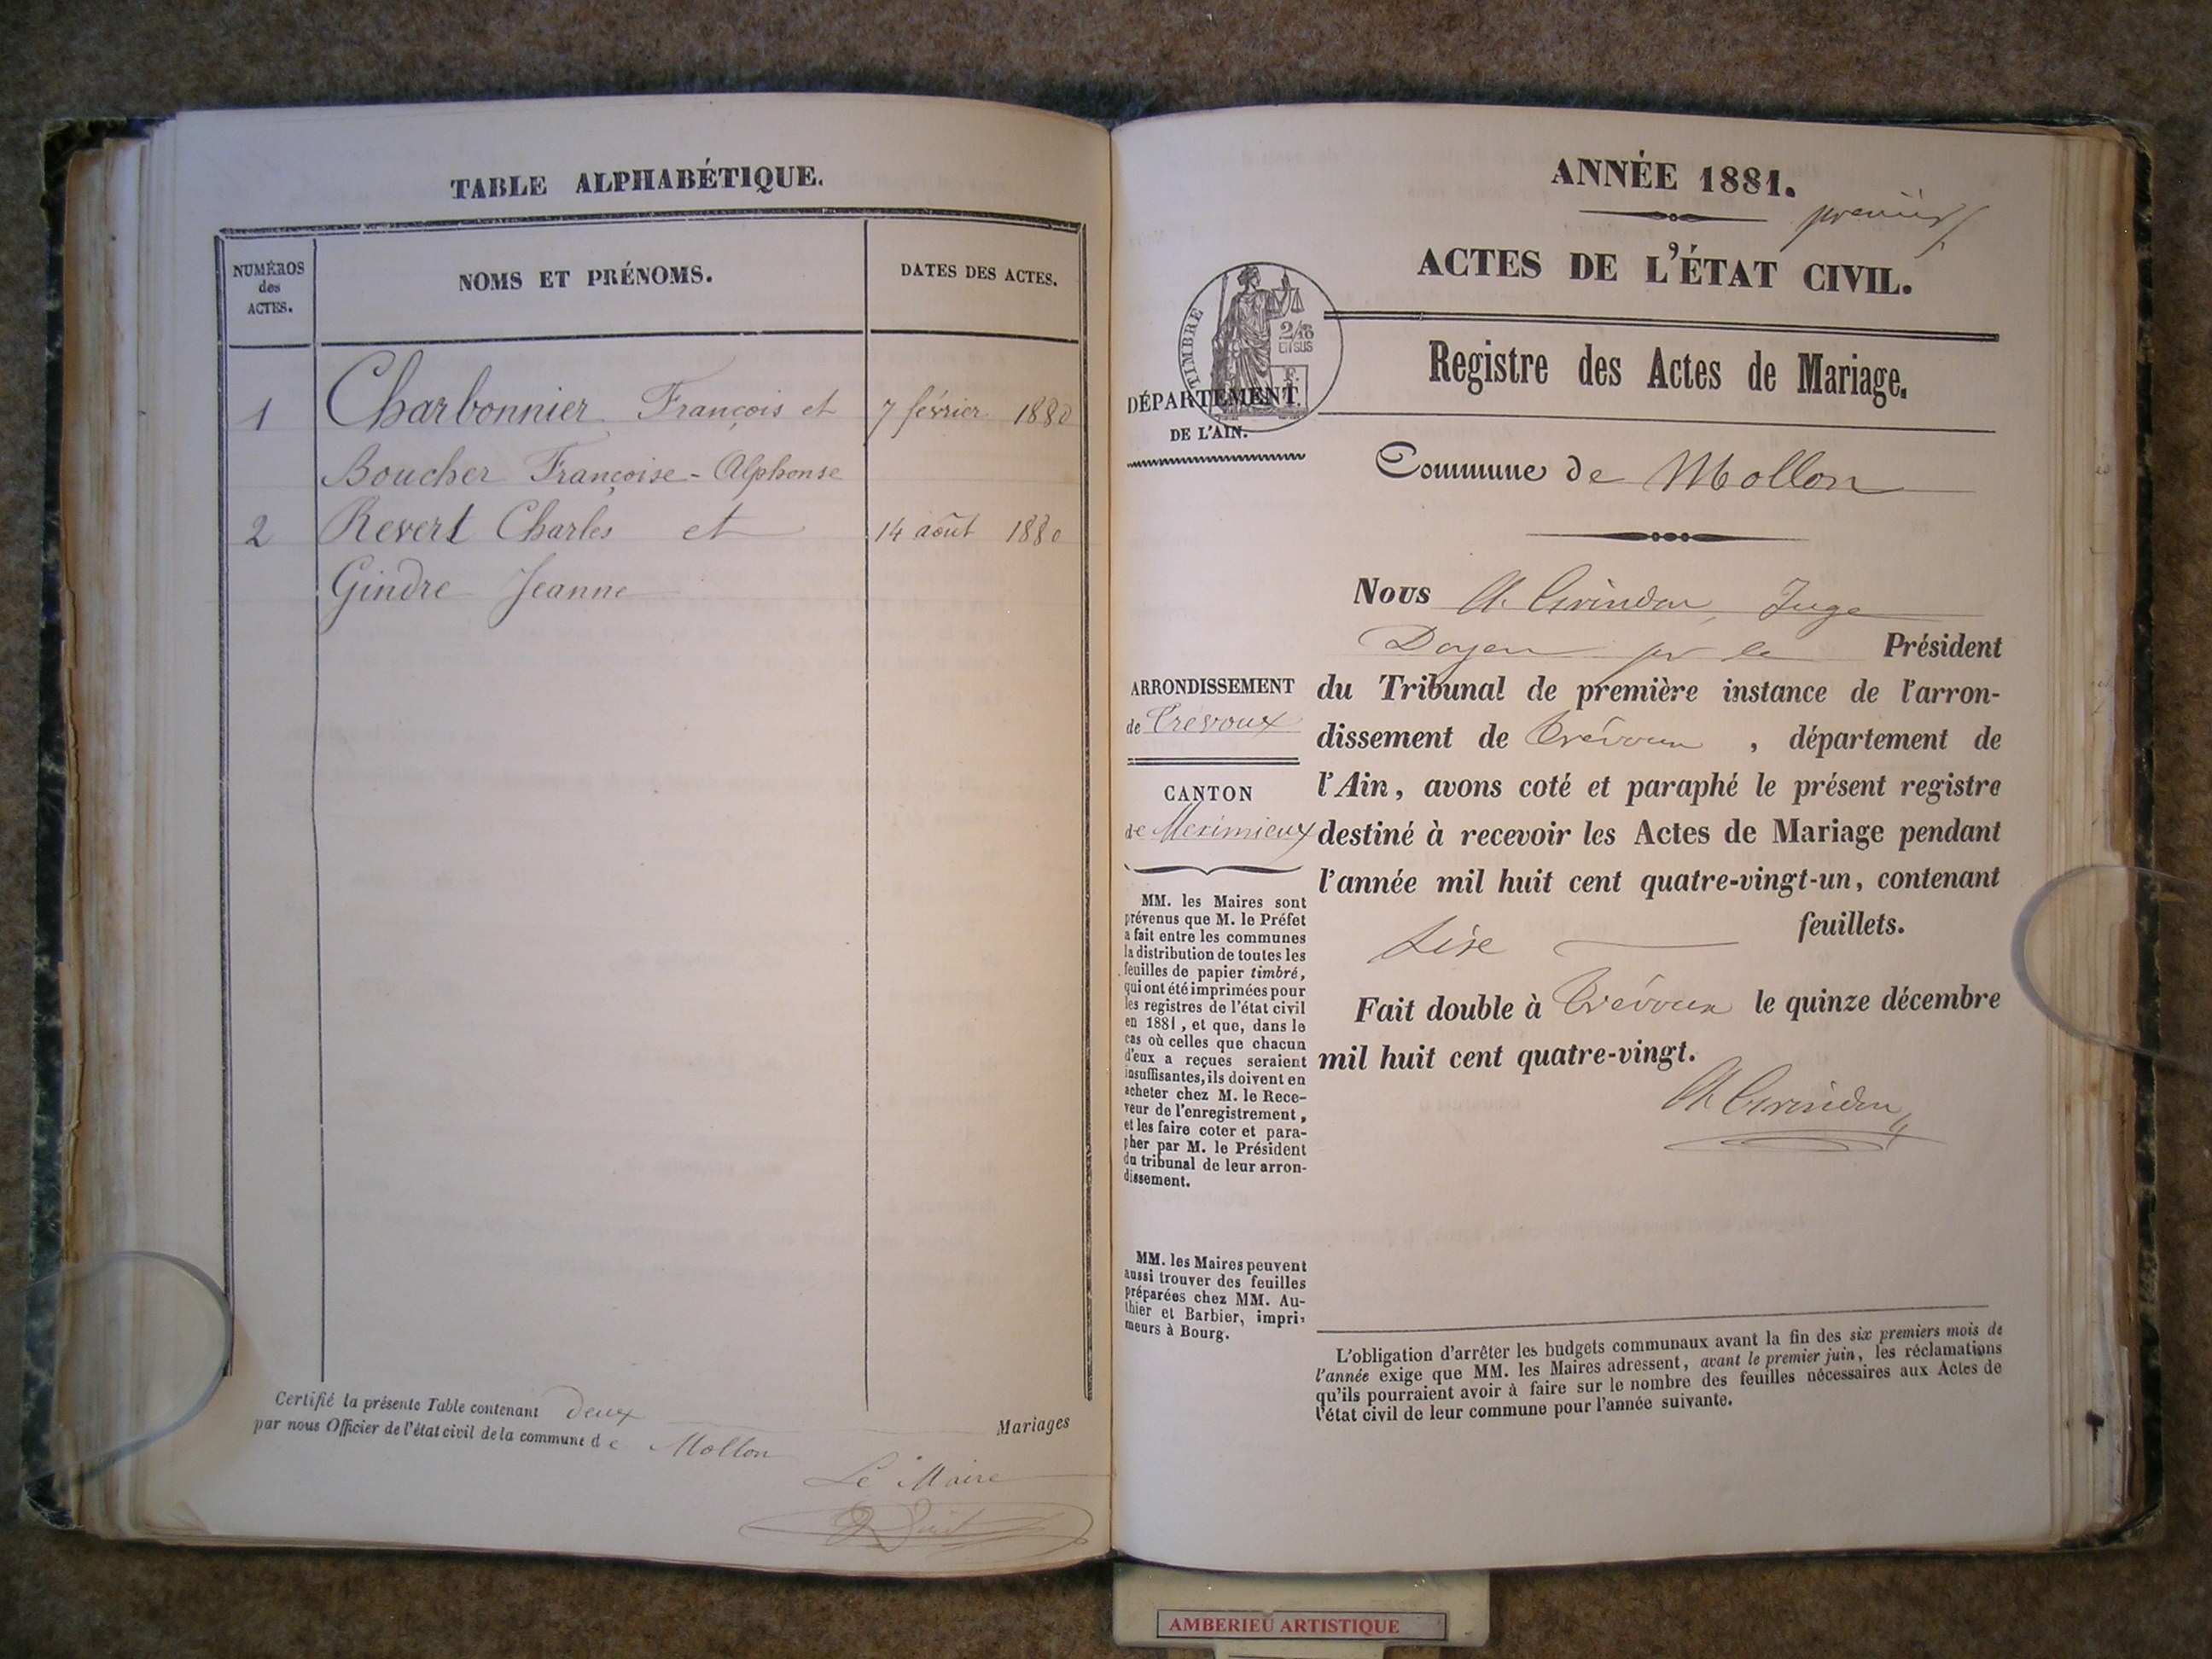 TABLE ALPHABÉTIQUE.
NUMÉROS
des
ACTES.
NOMS ET PRÉNOMS.
DATES DES ACTES.
1 Charbonnier François et 7 février 1880
Boucher Françoise-Alphonse
2 Revert Charles et 14 août 1880
Gindre Jeanne
Certifié la présente Table contenant deux Mariages
par nous Officier de l'état civil de la commune de Mollon
Le Maire
ANNÉE 1881.
premier
ACTES DE L'ÉTAT CIVIL.
TIMBRE
2/10
EN SUS
F.
DÉPARTEMENT
DE L'AIN.
Registre des Actes de Mariage.
Commune de Mollon
ARRONDISSEMENT
de Trévoux
CANTON
de Meximieux
MM. les Maires sont
prévenus que M. le Préfet
a fait entre les communes
la distribution de toutes les
feuilles de papier timbré,
qui ont été imprimées pour
les registres de l'état civil
en 1881, et que, dans le
cas où celles que chacun
d'eux a reçues seraient
insuffisantes, ils doivent en
acheter chez M. le Rece-
veur de l'enregistrement,
et les faire coter et para-
pher par M. le Président
du tribunal de leur arron-
dissement.
MM. les Maires peuvent
aussi trouver des feuilles
préparées chez MM. Au-
thier et Barbier, impri-
meurs à Bourg.
Nous Juge
Doyen pr le Président
du Tribunal de première instance de l'arron-
dissement de Trévoux, département de
l'Ain, avons coté et paraphé le présent registre
destiné à recevoir les Actes de Mariage pendant
l'année mil huit cent quatre-vingt-un, contenant
feuillets.
Fait double à Trévoux le quinze décembre
mil huit cent quatre-vingt.
L'obligation d'arrêter les budgets communaux avant la fin des six premiers mois de
l'année exige que MM. les Maires adressent, avant le premier juin, les réclamations
qu'ils pourraient avoir à faire sur le nombre des feuilles nécessaires aux Actes de
l'état civil de leur commune pour l'année suivante.
AMBERIEU ARTISTIQUE